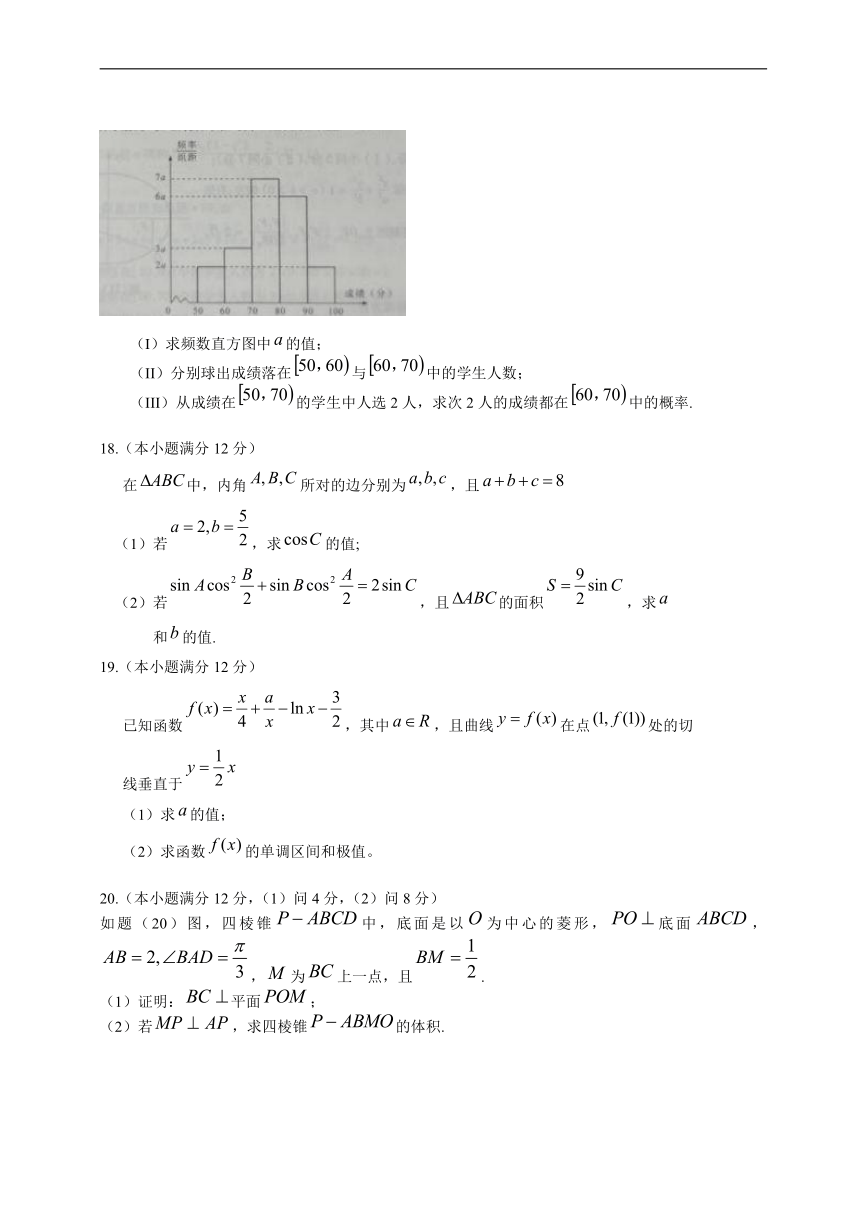 频率
组距
7a
6a
3a
2a
0 50 60 70 80 90 100 成绩（分）
（I）求频数直方图中a的值；
（II）分别球出成绩落在[50，60)与[60，70)中的学生人数；
（III）从成绩在[50，70)的学生中人选2人，求次2人的成绩都在[60，70)中的概率.
18.（本小题满分12分）
在ΔABC中，内角A,B,C所对的边分别为a,b,c，且a+b+c=8
（1）若a=2,b=5/2，求cosC的值;
（2）若sin A cos² B/2 + sin B cos² A/2 = 2sin C，且ΔABC的面积S=9/2 sin C，求a
和b的值.
19.（本小题满分12分）
已知函数f(x)=x/4+a/x−ln x−3/2，其中a∈R，且曲线y=f(x)在点(1,f(1))处的切
线垂直于y=1/2 x
（1）求a的值；
（2）求函数f(x)的单调区间和极值。
20.（本小题满分12分，（1）问4分，（2）问8分）
如题（20）图，四棱锥P−ABCD中，底面是以O为中心的菱形，PO⊥底面ABCD，
AB=2,∠BAD=π/3，M为BC上一点，且BM=1/2.
（1）证明：BC⊥平面POM；
（2）若MP⊥AP，求四棱锥P−ABMO的体积.